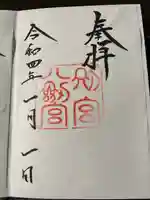 奉拝
別宮
八剣宮
令和四年一月一日